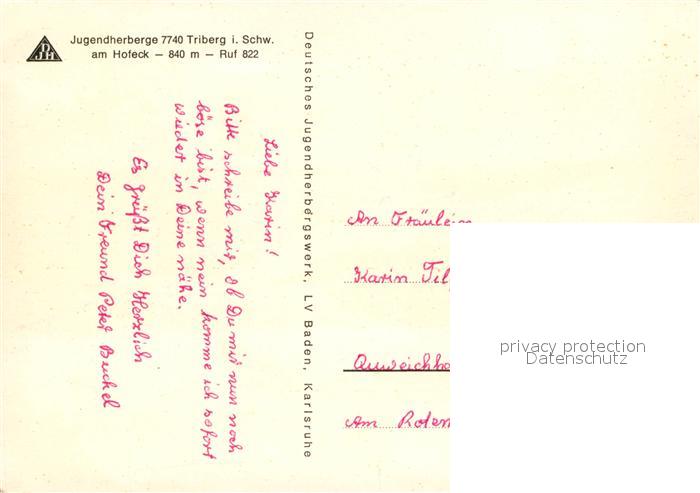 DJH
Jugendherberge 7740 Triberg i. Schw.
am Hofeck – 840 m – Ruf 822
Liebe Karin!
Bitte schreibe mir, ob Du mir nun noch
böse bist, wenn nein komme ich sofort
wieder in Deine nähe.
Es grüßt Dich Herzlich
Dein Freund Peter Buckel
Deutsches Jugendherbergswerk, LV Baden, Karlsruhe
An Fräulein
Karin
Am Roten
privacy protection
Datenschutz